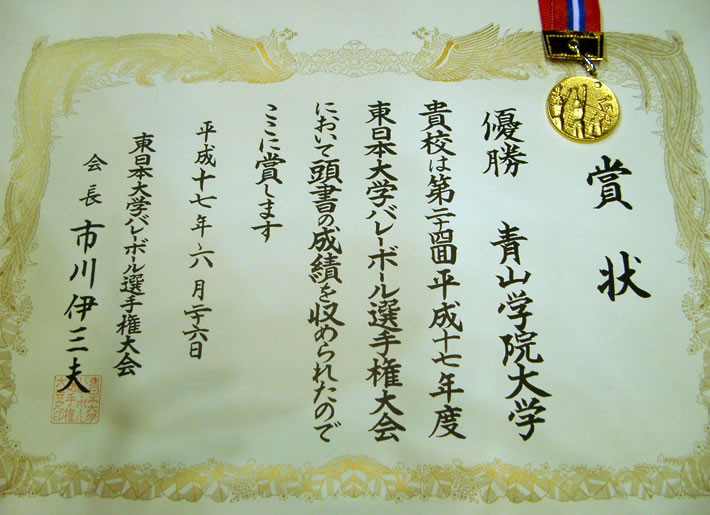 賞状
優勝 青山学院大学
貴校は第二十四回平成十七年度
東日本大学バレーボール選手権大会
において頭書の成績を収められたので
ここに賞します
平成十七年六月二十六日
東日本大学バレーボール選手権大会
会長 市川伊三夫